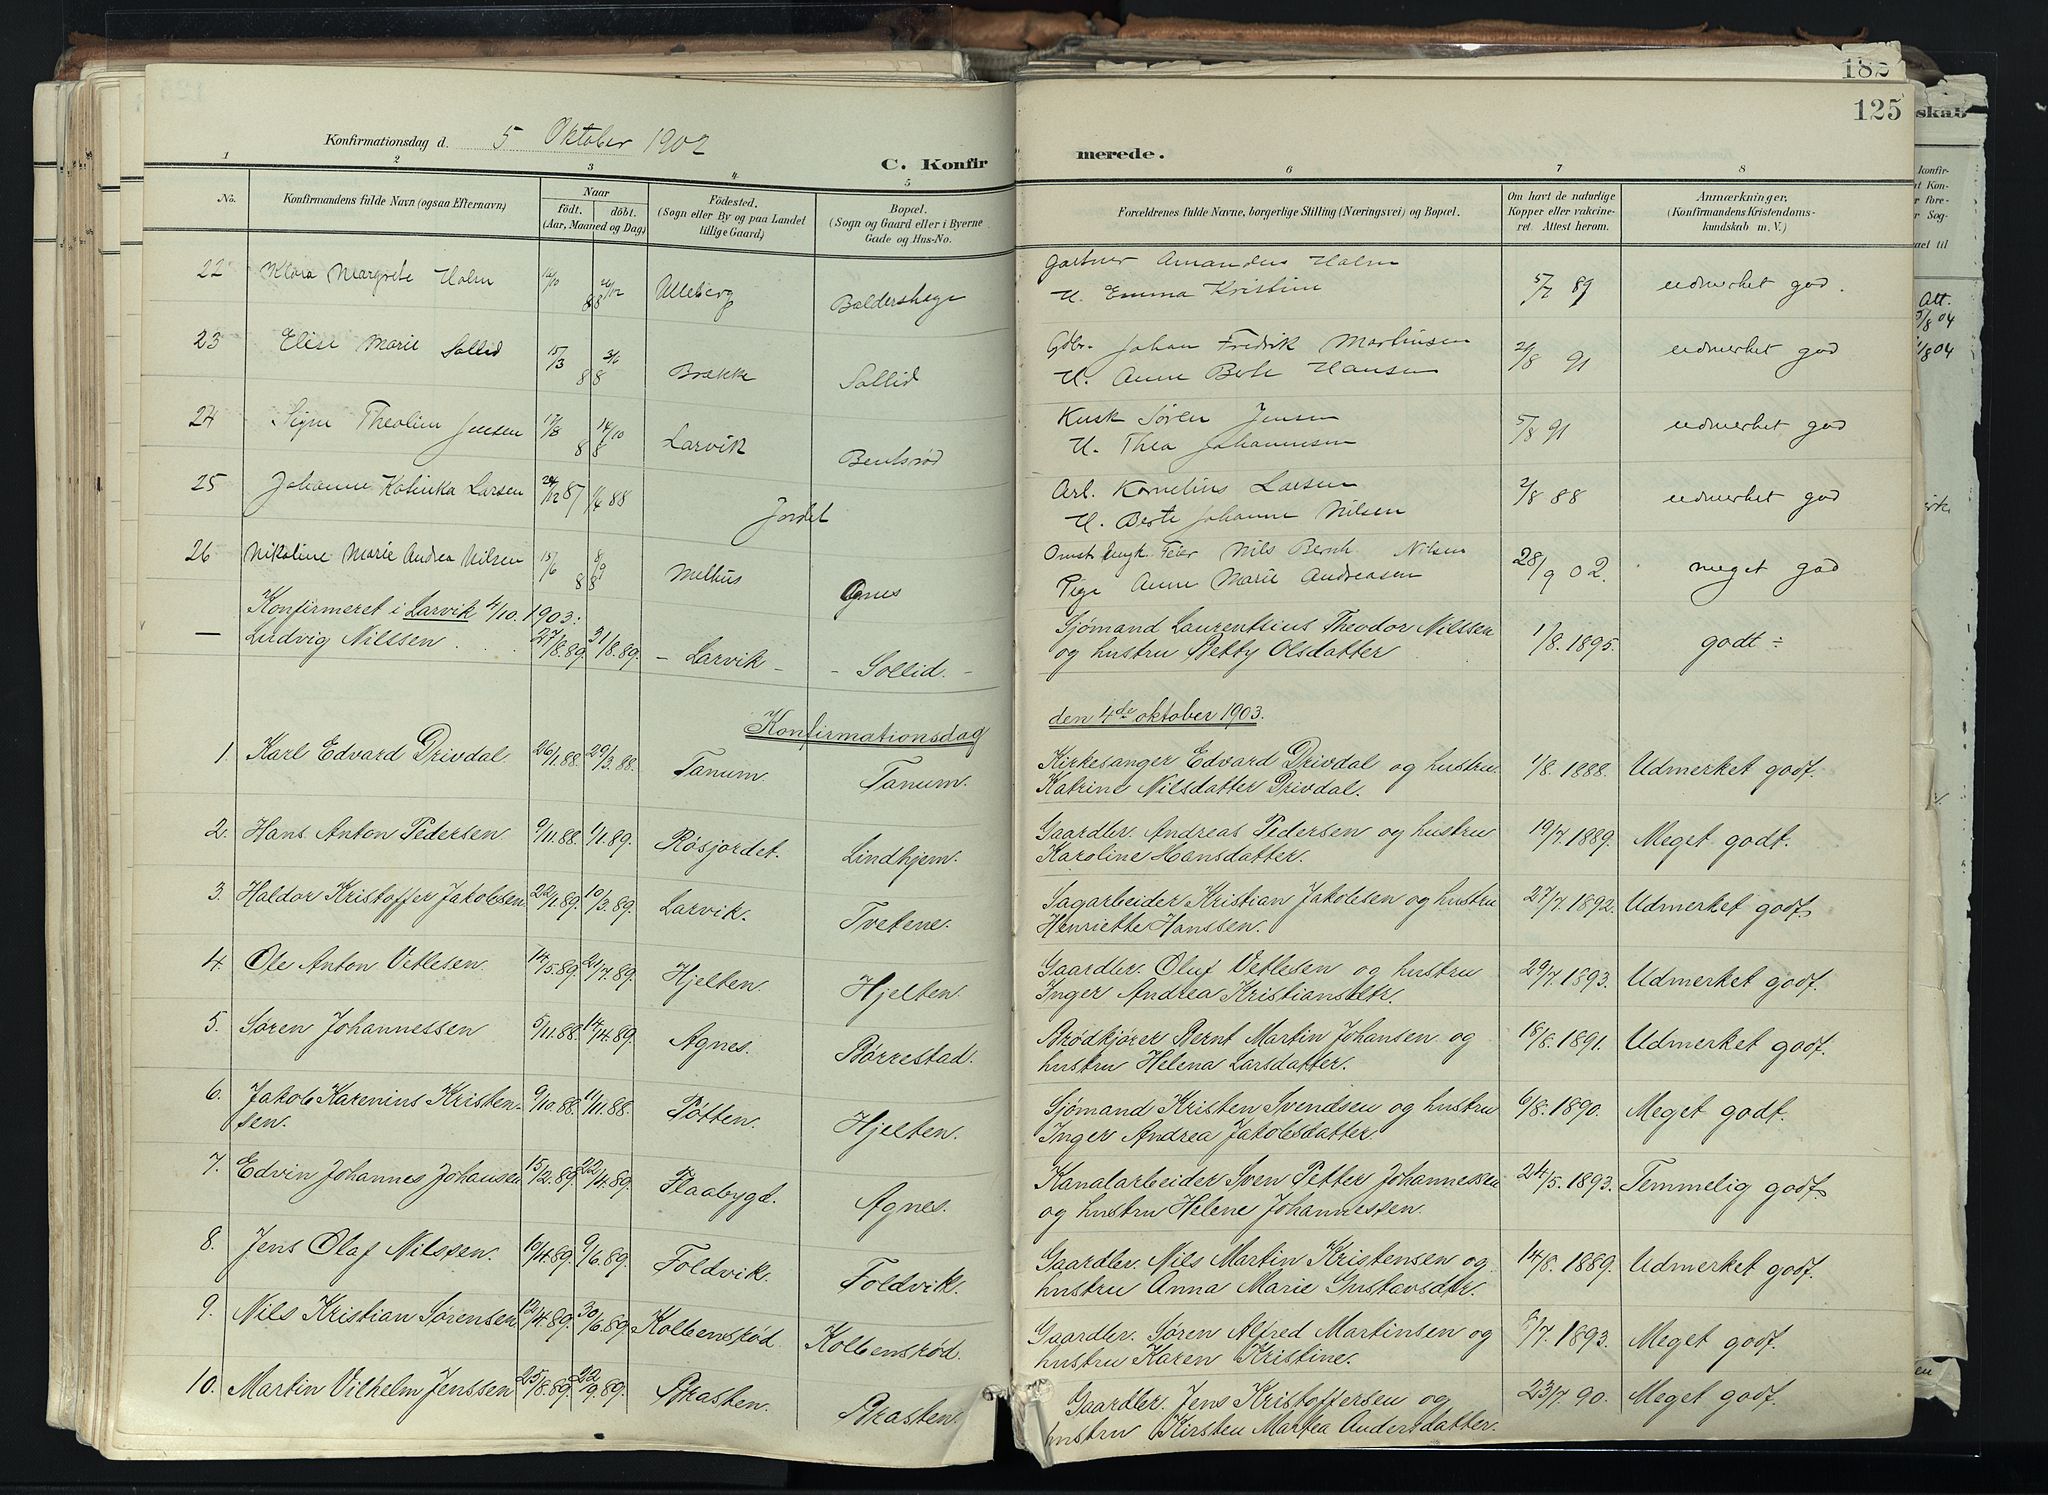 182
125
Konfirmationsdag d. 5 Oktober 1902
C. Konfir
merede.
1 2 3 4 5 6 7 8
No.
Konfirmandens fulde Navn (ogsaa Efternavn)
Naar
födt. döbt.
(Aar, Maaned og Dag)
Födested.
(Sogn eller By og paa Landet
tillige Gaard)
Bopæl.
(Sogn og Gaard eller i Byerne
Gade og Hus-No.
Forældrenes fulde Navne, borgerlige Stilling (Næringsvei) og Bopæl.
Om havt de naturlige
Kopper eller vakcine-
ret. Attest herom.
Anmærkninger.
(Konfirmandens Kristendoms-
kundskab m. V.)
22 Klara Margrete Holm 88 Ulleberg Boldershage
Gartner Amandus Holm 5/7 89 udmerket god.
H. Emma Kristine
23 Elise Marie Sollid 15/3 88 Brække Sollid
Gdbr. Johan Fredrik Martinsen /8 91 udmerket god
H. Anne Berte Hansen
24 Signe Theoline Jensen 17/8 14/10 88 Larvik Bentsrød
Kusk Søren Jensen 5/8 91 udmerket god
H. Thea Johannesen
25 Johanne Katinka Larsen 87 88 Jordet
Arb. Kornelius Larsen 2/8 88 udmerket god
H. Berte Johanne Nilsen
26 Nikoline Marie Andrea Nilsen 15/6 8/9 88 Melhus Agnes
Feier Nils Bernh. Nilsen 28/9 02. meget god
Pige Anne Marie Andreasen
Konfirmeret i Larvik 4/10. 1903:
— Ludvig Nilssen 27/8.89. 31/8.89. - Larvik - - Sollid. -
Sjømand Laurentsius Theodor Nilssen 1/8. 1895. godt ÷
og hustru Betty Olsdatter
Konfirmationsdag den 4de oktober 1903.
1. Karl Edvard Drivdal. 26/1.88. 29/3.88. Tanum. Tanum.
Kirkesanger Edvard Drivdal og hustru 1/8. 1888. Udmerket godt.
Katrine Nilsdatter Drivdal.
2. Hans Anton Pedersen 9/11.88. 1/1.89. Røsjordet. Lindhjem.
Gaardbr. Andreas Pedersen og hustru 19/7. 1889. Meget godt.
Karoline Hansdatter.
3. Haldor Kristoffer Jakobsen 22/1.89. 10/3.89. Larvik. Tvetene.
Sagarbeider Kristian Jakobsen og hustru 27/7. 1892. Udmerket godt
Henriette Hanssen.
4. Ole Anton Vetlesen. 14/5.89. 21/7.89. Hjelten. Hjelten.
Gaardbr. Oluf Vetlesen og hustru 29/7. 1893. Udmerket godt.
Inger Andrea Kristiansdtr.
5. Søren Johannessen 5/11.88. 14/4.89. Agnes. Børrestad.
Brødkjører Bernt Martin Johansen og 18/8. 1891. Udmerket godt.
hustru Helena Larsdatter.
6. Jakob Karenius Kristen- 9/10.88. 11/11.88. Pøtten. Hjelten.
sen.
Sjømand Kristen Svendsen og hustru 6/8. 1890. Meget godt.
Inger Andrea Jakobsdatter
7. Edvin Johannes Johansen 15/2.89. 22/4.89. Flaabygd. Agnes.
Kanalarbeider Sven Petter Johannessen 24/5. 1893. Temmelig godt
og hustru Helene Johannessen.
8. Jens Olaf Nilssen. 10/4.89. 9/6.89. Foldvik. Foldvik.
Gaardbr. Nils Martin Kristensen og 14/8. 1889. Udmerket godt.
hustru Anna Marie Gustavsdtr.
9. Nils Kristian Sørensen 12/4.89. 30/6.89. Kolbensrød. Kolbensrød.
Gaardbr. Søren Alfred Martinsen og /7. 1893. Meget godt.
hustru Karen Kristine.
10. Martin Vilhelm Jenssen 25/8.89. 22/9.89. Brasten. Brasten.
Gaardbr. Jens Kristoffersen og 23/7. 90. Meget godt.
hustru Kirsten Martea Andersdatter.